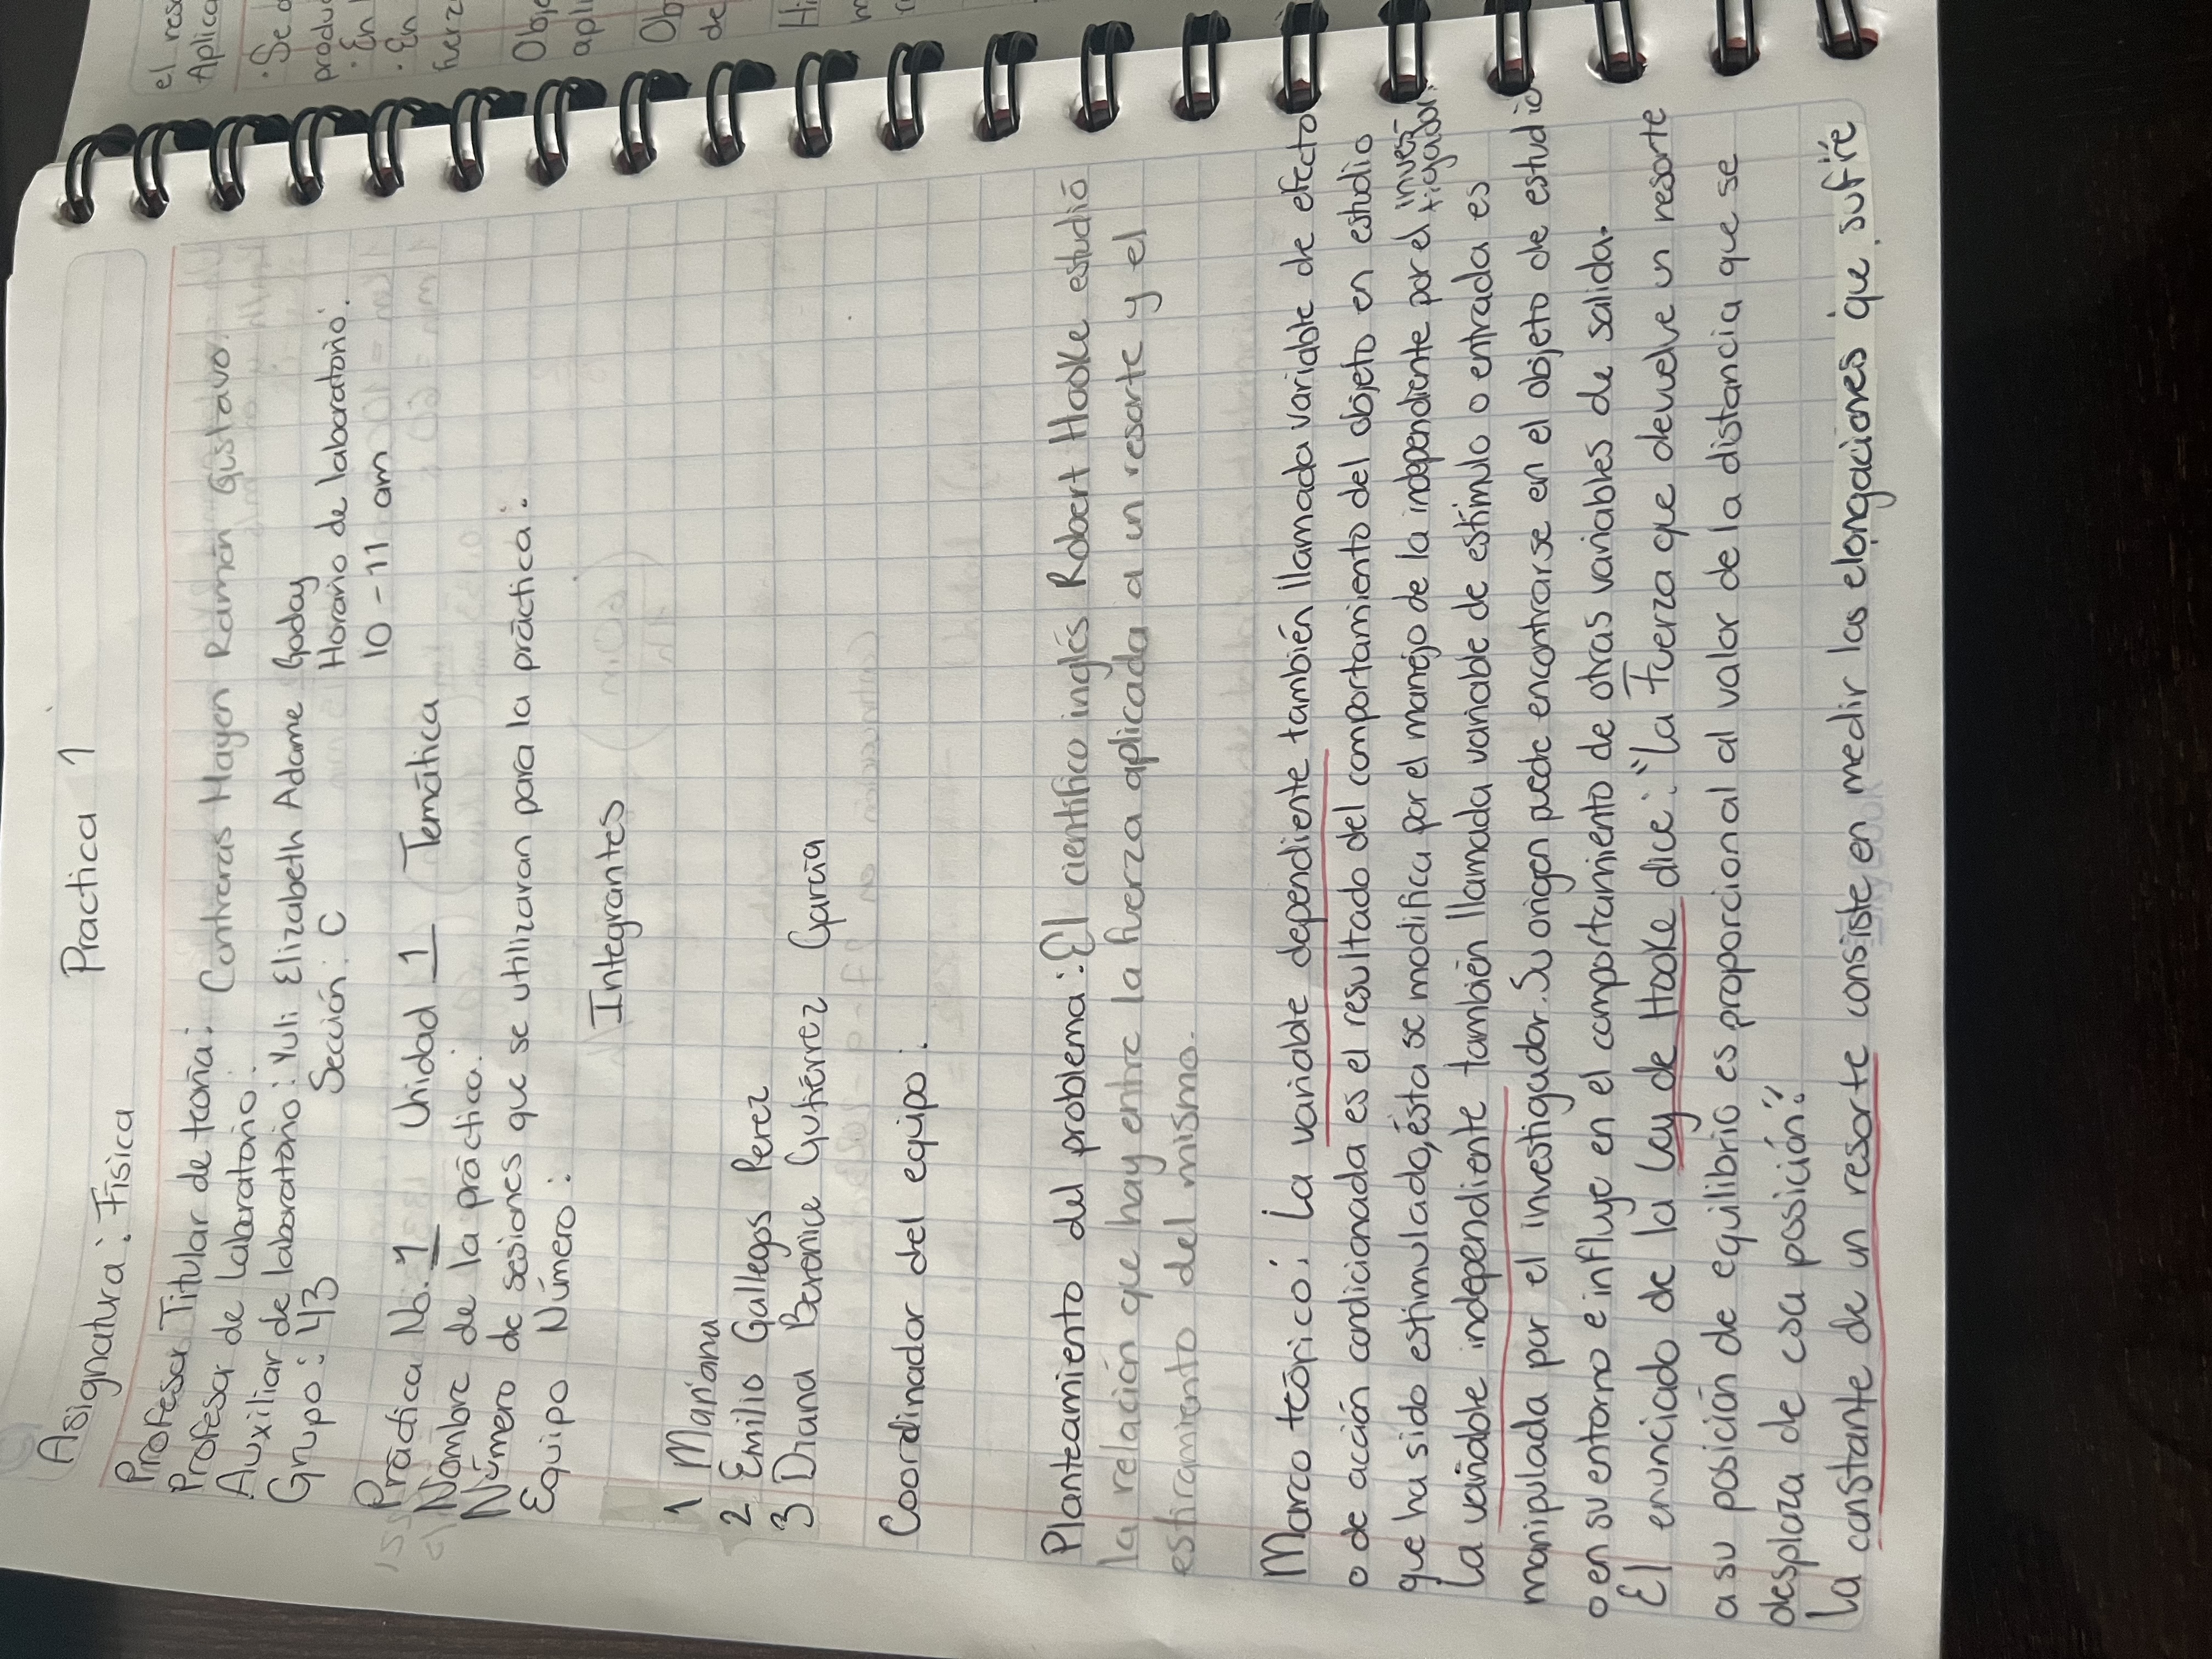 Practica 1
Asignatura: Física
Profesor Titular de teoría: Contreras Hayen Ramón Gustavo.
Profesor de laboratorio:
Auxiliar de laboratorio: Yuli Elizabeth Adame Goday
Grupo: 43 Sección: C Horario de laboratorio:
10 - 11 am
Práctica No. 1 Unidad 1 Temática
Nombre de la práctica:
Número de sesiones que se utilizaran para la práctica:
Equipo Número:
Integrantes
1 Mariana
2 Emilio Gallegos Perez
3 Diana Berenice Gutiérrez García
Coordinador del equipo:
Planteamiento del problema: El científico inglés Robert Hooke estudió
la relación que hay entre la fuerza aplicada a un resorte y el
estiramiento del mismo.
Marco teórico: La variable dependiente también llamada variable de efecto
o de acción condicionada es el resultado del comportamiento del objeto en estudio
que ha sido estimulado, ésta se modifica por el manejo de la independiente por el inves-
tigador.
La variable independiente también llamada variable de estímulo o entrada es
manipulada por el investigador. Su origen puede encontrarse en el objeto de estudio
o en su entorno e influye en el comportamiento de otras variables de salida.
El enunciado de la Ley de Hooke dice: "La Fuerza que devuelve un resorte
a su posición de equilibrio es proporcional al valor de la distancia que se
desplaza de esa posición".
La constante de un resorte consiste en medir las elongaciones que sufre
el res
Aplica
· Se
produ
· En
· En
fuerz
Obje
apli
Ob
de
Hi